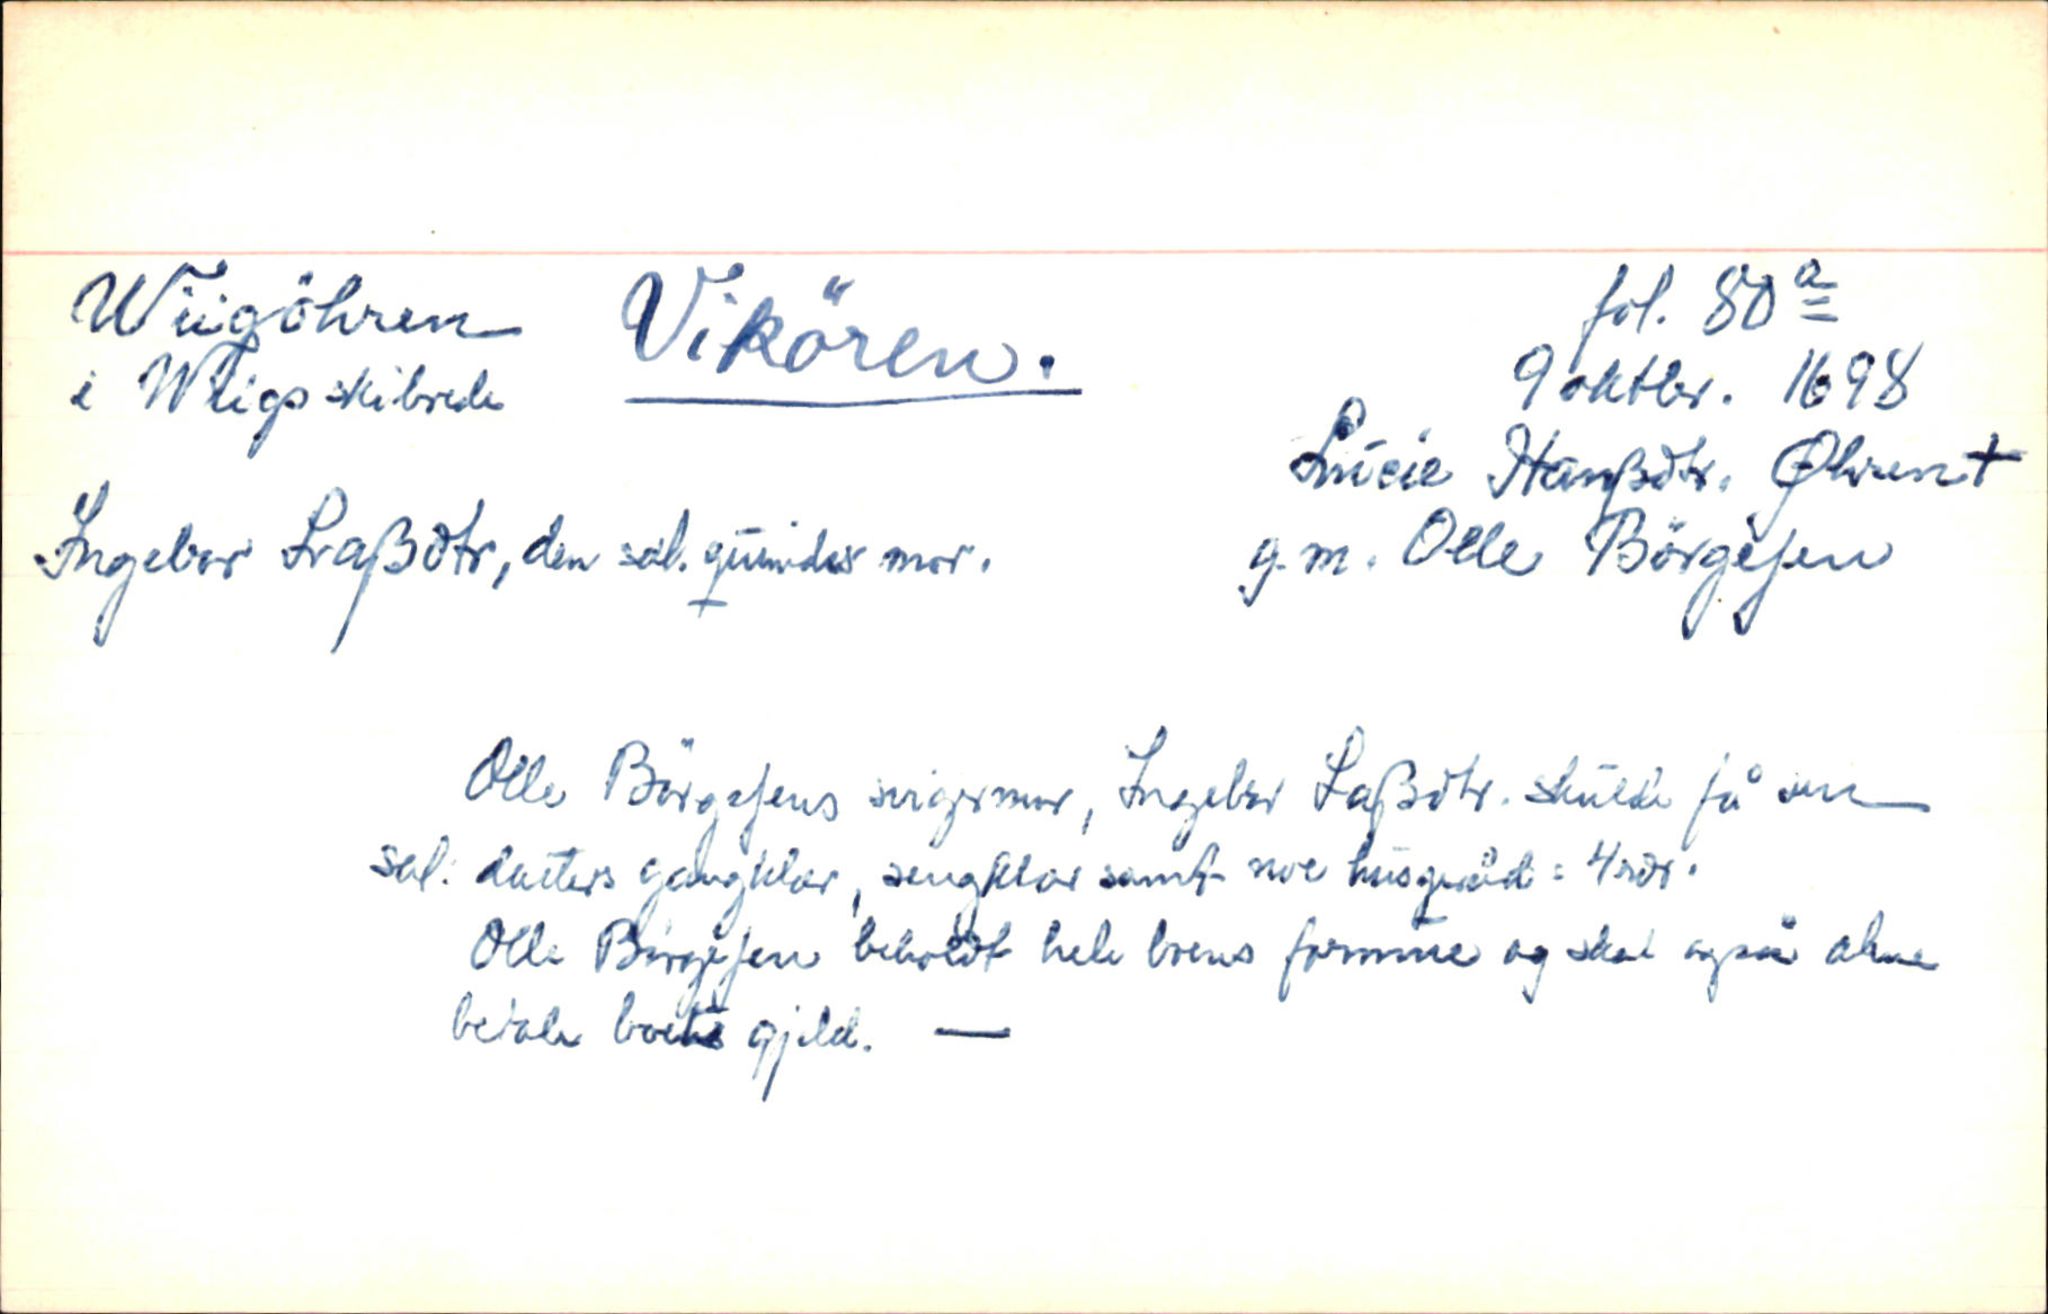 Wiigöhren
i Wiigs skibrede
Vikören.
fol. 80 a
9 oktbr. 1698
Lucie Hanßdtr. Øhren +
g. m. Olle Börgesen
Ingebor Laßdtr, den sal. quindes mor.
Olle Börgesens svigermor, Ingebor Laßdtr. skulde få sin
sal: datters gangklær, sengklær samt noe husgeråd: 4 rdr.
Olle Börgesen beholdt hele boens formue og skal også alene
betale boets gjeld. —